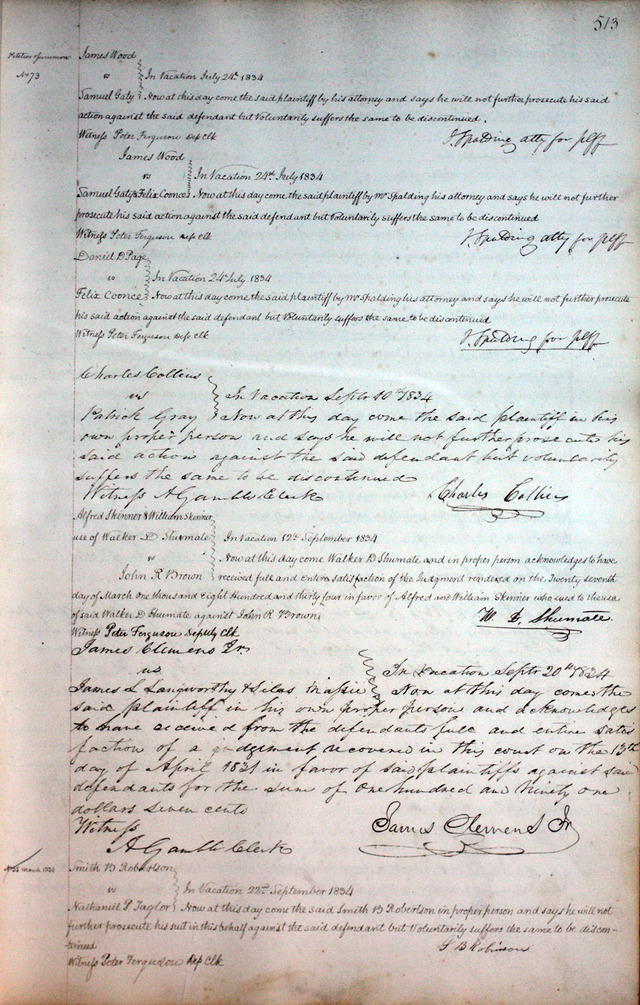 513
Petition of summons
No 73
James Wood
vs } In Vacation July 24th 1834
Samuel Gaty } Now at this day come the said plaintiff by his attorney and says he will not further prosecute his said
action against the said defendant but Voluntarily suffers the same to be discontinued.
Witness Peter Ferguson Dep Clk
J. Spalding atty for plff
James Wood
vs } In Vacation 24th July 1834
Samuel Gaty & Felix Coonce } Now at this day come the said plaintiff by Mr Spalding his attorney and says he will not further
prosecute his said action against the said defendant but Voluntarily suffers the same to be discontinued
Witness Peter Ferguson Dep Clk
J. Spalding atty for plff
Daniel D Page
vs } In Vacation 24 July 1834
Felix Coonce } Now at this day come the said plaintiff by Mr Spalding his attorney and says he will not further prosecute
his said action against the said defendant but Voluntarily suffers the same to be discontinued
Witness Peter Ferguson Dep Clk
J. Spalding for plff
Charles Collins
vs } In Vacation Septr 10th 1834
Patrick Gray } Now at this day come the said plaintiff in his
own proper person and says he will not further prosecute his
said action against the said defendant but voluntarily
suffers the same to be discontinued
Witness A Gamble Clerk
Charles Collins
Alfred Skinner & William Skinner
use of Walker D Shumate } In Vacation 12th September 1834
vs } Now at this day come Walker D Shumate and in proper person acknowledges to have
John R Brown } received full and entire satisfaction of the Judgment rendered on the Twenty seventh
day of March one thousand Eight Hundred and thirty four in favor of Alfred and William Skinner who sued to the use
of said Walker D Shumate against John R Brown
W. D. Shumate
Witness Peter Ferguson Deputy Clk
James Clemens Jr
vs } In Vacation Septr 20th 1834
James L Langworthy & Silas Massie } Now at this day comes the
said plaintiff in his own proper person and acknowledges
to have received from the defendants full and entire satis
faction of a judgement recovered in this court on the 13th
day of April 1831 in favor of said plaintiffs against said
defendants for the sum of One hundred and Ninety one
dollars Seven cents
Witness
A Gamble Clerk
James Clemens Jr
No 55 March 1834
Smith B Robertson
vs } In Vacation 22nd September 1834
Nathaniel P Taylor } Now at this day come the said Smith B Robertson in proper person and says he will not
further prosecute his suit in this behalf against the said defendant but Voluntarily suffers the same to be discon-
tinued
S B Robinson
Witness Peter Ferguson Dep Clk